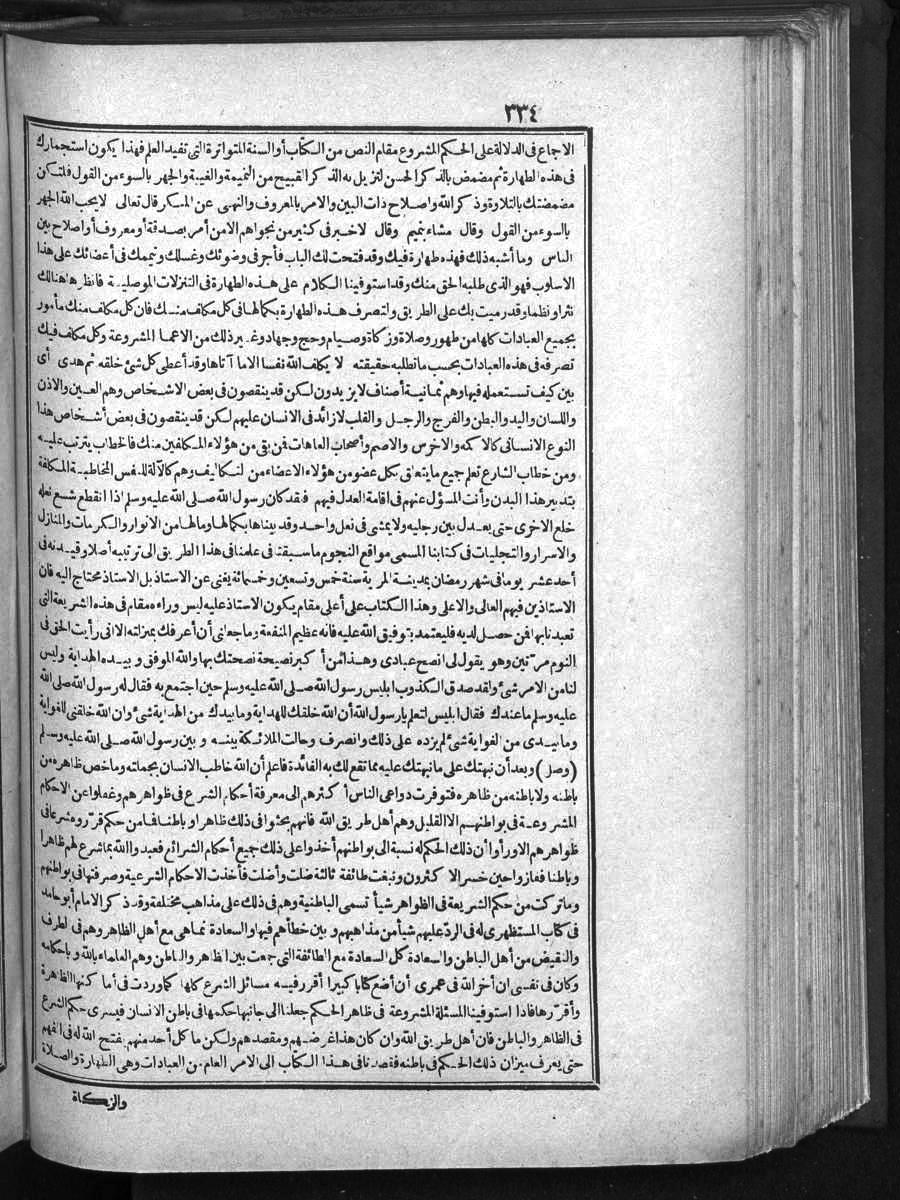 ٣٣٤
الاجماع فى الدلالة على الحكم المشروع مقام النص من الكتاب أو السنة المتواترة التى تفيد العلم فهذا يكون استجمارك
فى هذه الطهارة ثم مضمض بالذكر الحسن لتزيل به الذكر القبيح من النميمة والغيبة والجهر بالسوء من القول فلتكن
مضمضتك بالتلاوة وذكر الله واصلاح ذات البين والامر بالمعروف والنهى عن المنكر قال تعالى لا يحب الله الجهر
بالسوء من القول وقال مشاء بنميم وقال لاخير فى كثير من نجواهم الامن أمر بصدقة أو معروف أو اصلاح بين
الناس وما أشبه ذلك فهذه طهارة فيك وقد فتحت لك الباب فأجر فى وضوئك وغسلك وتيممك فى أعضائك على هذا
الاسلوب فهو الذى طلبه الحق منك وقد استوفينا الكلام على هذه الطهارة فى التنزلات الموصلية فانظرها هنالك
نثرا ونظما وقد رميت بك على الطريق ولتصرف هذه الطهارة بكمالها فى كل مكلف منك فان كل مكلف منك مأمور
بجميع العبادات كلها من طهور وصلاة وزكاة وصيام وحج وجهاد وغير ذلك من الاعمال المشروعة وكل مكلف فيك
تصرفه فى هذه العبادات بحسب ما تطلبه حقيقته لا يكلف الله نفسا الاما آتاها وقد أعطى كل شئ خلقه ثم هدى أى
بين كيف تستعمله فيها وهم ثمانية أصناف لا يزيدون لكن قد ينقصون فى بعض الاشخاص وهم العين والاذن
واللسان واليد والبطن والفرج والرجل والقلب لازائد فى الانسان عليهم لكن قد ينقصون فى بعض أشخاص هذا
النوع الانسانى كالاكمه والاخرس والاصم وأصحاب العاهات فمن بقى من هؤلاء المكلفين منك فالخطاب يترتب عليه
ومن خطاب الشارع تعلم جميع ما يتعلق بكل عضو من هؤلاء الاعضاء من التكاليف وهم كالآلة للنفس المخاطبة المكلفة
بتدبير هذا البدن وأنت المسؤل عنهم فى اقامة العدل فيهم فقد كان رسول الله صلى الله عليه وسلم اذا انقطع شسع نعله
خلع الاخرى حتى يعدل بين رجليه ولا يمشى فى نعل واحد وقد بيناها بكمالها ومالها من الانوار والكرمات والمنازل
والاسرار والتجليات فى كتابنا المسمى مواقع النجوم ما سبقنا فى علمنا فى هذا الطريق الى ترتيبه أصلا وقيدته فى
أحد عشر يوما فى شهر رمضان بمدينة المرية سنة خمس وتسعين وخمسمائة يغنى عن الاستاذ بل الاستاذ محتاج اليه فان
الاستاذين فيهم العالى والاعلى وهذا الكتاب على أعلى مقام يكون الاستاذ عليه ليس وراءه مقام فى هذه الشريعة التى
تعبدنا بها فمن حصل لديه فليعتمد بتوفيق الله عليه فانه عظيم المنفعة وما جعلنى أن أعرفك بمنزلته الا انى رأيت الحق فى
النوم مرتين وهو يقول لى انصح عبادى وهذا من أكبر نصيحة نصحتك بها والله الموفق وبيده الهداية وليس
لنا من الامر شئ ولقد صدق الكذوب ابليس رسول الله صلى الله عليه وسلم حين اجتمع به فقال له رسول الله صلى الله
عليه وسلم ما عندك فقال ابليس لتعلم يا رسول الله أن الله خلقك للهداية وما بيدك من الهداية شئ وان الله خلقنى للغواية
وما بيدى من الغواية شئ لم يزده على ذلك وانصرف وحالت الملائكة بينه وبين رسول الله صلى الله عليه وسلم
(وصل) وبعد أن نبهتك على ما نبهتك عليه مما تقع لك به الفائدة فاعلم أن الله خاطب الانسان بجملته وما خص ظاهره من
باطنه ولا باطنه من ظاهره فتوفرت دواعى الناس أكثرهم الى معرفة أحكام الشرع فى ظواهرهم وغفلوا عن الاحكام
المشروعة فى بواطنهم الا القليل وهم أهل طريق الله فانهم بحثوا فى ذلك ظاهرا وباطنا فما من حكم قرروه شرعا فى
ظواهرهم الاورأوا أن ذلك الحكم له نسبة الى بواطنهم أخذوا على ذلك جميع أحكام الشرائع فعبدوا الله بما شرع لهم ظاهرا
وباطنا ففازوا حين خسر الاكثرون ونبغت طائفة ثالثة ضلت وأضلت فأخذت الاحكام الشرعية وصرفتها فى بواطنهم
وما تركت من حكم الشريعة فى الظواهر شيأ تسمى الباطنية وهم فى ذلك على مذاهب مختلفة وقد ذكر الامام أبو حامد
فى كتاب المستظهرى له فى الرد عليهم شيأ من مذاهبهم وبين خطأهم فيها والسعادة انما هى مع أهل الظاهر وهم فى الطرف
والنقيض من أهل الباطن والسعادة كل السعادة مع الطائفة التى جمعت بين الظاهر والباطن وهم العلماء بالله وباحكامه
وكان فى نفسى ان أخر الله فى عمرى أن أضع كتابا كبيرا أقرر فيه مسائل الشرع كلها كما وردت فى أماكنها الظاهرة
وأقررها فاذا استوفينا المسئلة المشروعة فى ظاهر الحكم جعلنا الى جانبها حكمها فى باطن الانسان فيسرى حكم الشرع
فى الظاهر والباطن فان أهل طريق الله وان كان هذا غرضهم ومقصدهم ولكن ما كل أحد منهم يفتح الله له فى الفهم
حتى يعرف ميزان ذلك الحكم فى باطنه فقصدنا فى هذا الكتاب الى الامر العام من العبادات وهى الطهارة والصلاة
والزكاة